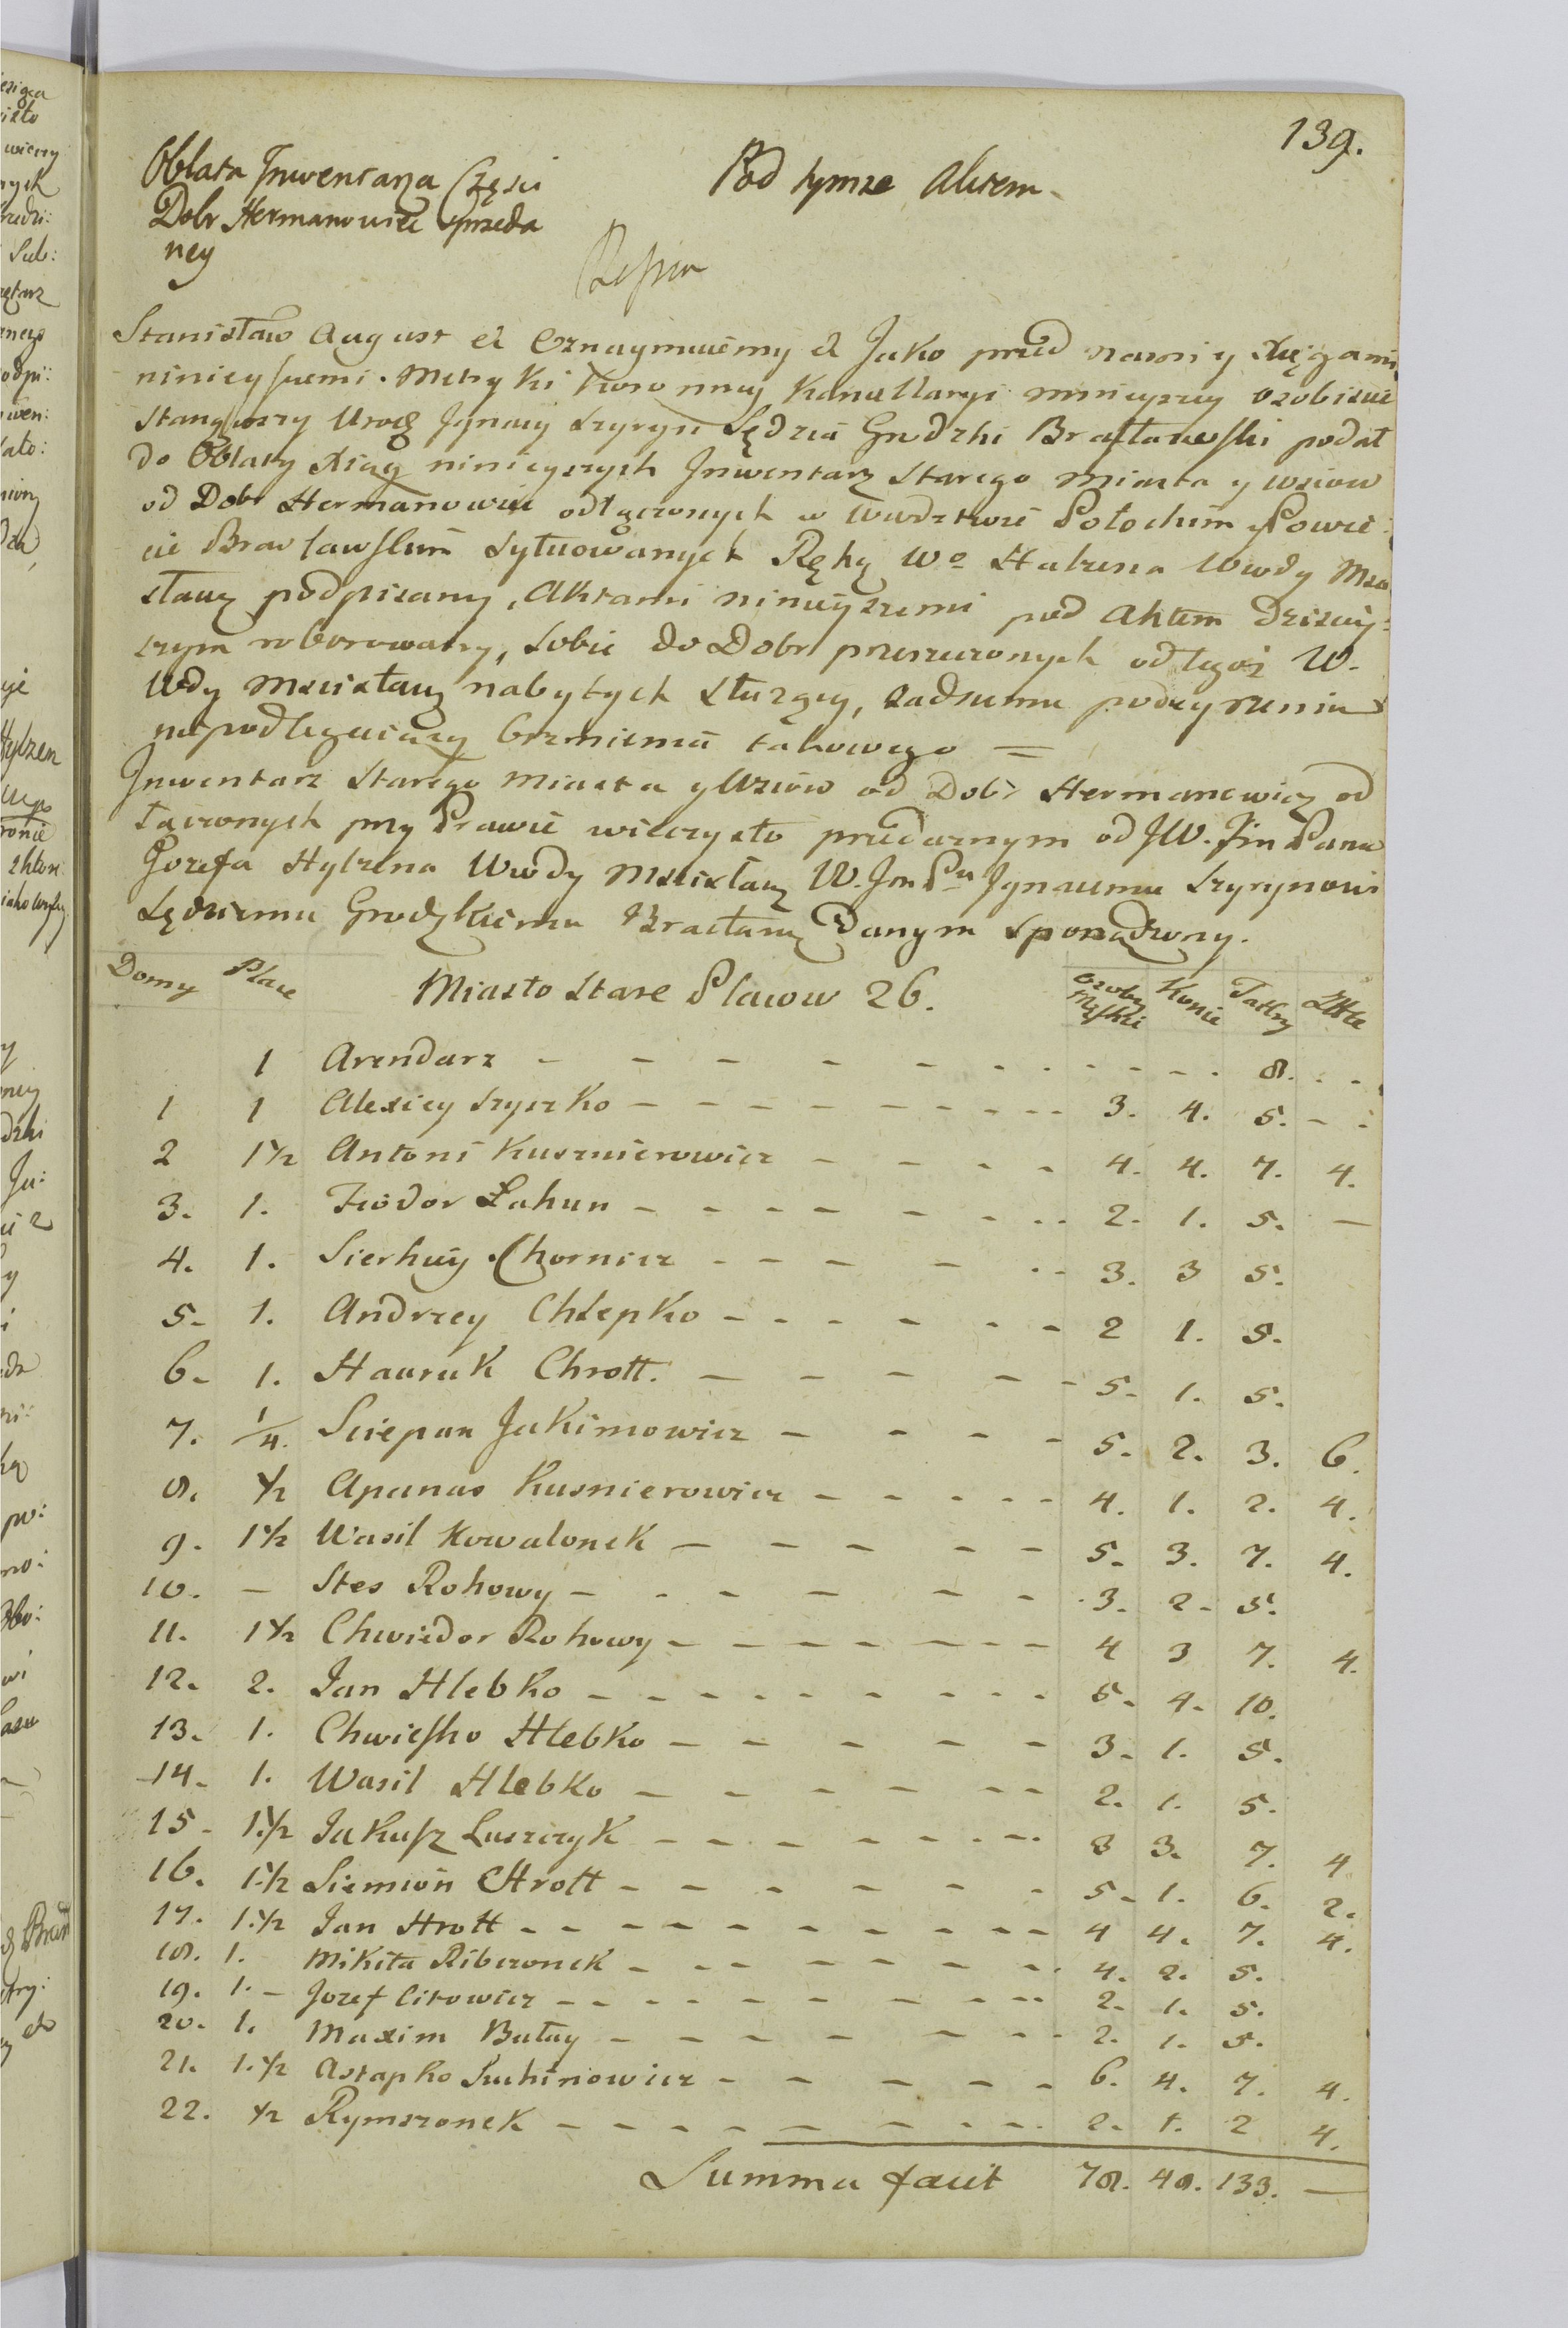 139.
Oblata Inwentarza Częsci
Dobr Hermanowicz przeda
ney
Pod tymze Aktem
Stanisław August et Oznaymuiemy et Jako przed nami y Xięgami
ninieyszemi Metryki Koronney Kancellaryi mnieyszey osobiscie
stanąwszy Urodz Ignacy Szyryn Sędzia Grodzki Brasławski podał
do Oblaty Xiąg ninieyszych Inwentarz Starego Miasta y wsiow
od Dobr Hermanowicz odłączonych w Wwdztwie Połockim y Powie:
cie Brasławskim sytuowanych Ręką Wo Hylzena Wwdy Msci
sławz podpisany, Aktami ninieyszemi pod Aktem dzisiey:
szym roborowany, sobie do Dobr przerzeczonych od tegoż W.
Wdy Mscisławz nabytych służący, żadnemu podeyrzeniu
niepodlegaiący brzmienia takowego =
Inwentarz Starego Miasta y Wsiow od Dobr Hermanowicz od
łączonych przy Prawie wieczysto przedaznym od JW. Jm Pana
Jozefa Hylzena Wwdy Mscisławz W. Jm Pu Ignacemu Szyrynowi
Sędziemu Grodzkiemu Bracławz Danym sporządzony.
Domy Place Miasto Stare Placow 26. Osoby Męskie Konie Tallry Złtte
1 Arendarz - - - - - 8. - -
1 1 Alexiey Szyszko - - - - 3. 4. 5. - -
2 1½ Antoni Kusznierowicz - - - - 4. 4. 7. 4.
3. 1. Fiodor Łahun - - - - 2. 1. 5. —
4. 1. Sierhiey Chornicz - - - - 3. 3 5.
5. 1. Andrzey Chlepko - - - - 2 1. 5.
6. 1. Hauruk Chrott. - - - - 5. 1. 5.
7. ¼. Sciepan Jakimowicz - - - - 5. 2. 3. 6.
8. ½ Apanas Kusnierowicz - - - - 4. 1. 2. 4.
9. 1½ Wasil Kowalonek - - - - 5. 3. 7. 4.
10. — Stes Rohowy - - - - 3. 2. 5.
11. 1½ Chwiedor Rohowy - - - - 4 3 7. 4.
12. 2. Jan Hlebko - - - - 5. 4. 10.
13. 1. Chwiesko Hlebko - - - - 3. 1. 5.
14. 1. Wasil Hlebko - - - - 2. 1. 5.
15. 1.½ Jakusz Luszczyk - - - - 3 3. 7. 4
16. 1.½ Siemion Hrott - - - - 5. 1. 6. 2.
17. 1.½ Jan Hrott - - - - 4 4. 7. 4.
18. 1. Mikita Ribczonek - - - - 4. 2. 5.
19. 1. - Jozef Citowicz - - - - 2. 1. 5.
20. 1. Maxim Butay - - - - 2. 1. 5.
21. 1.½ Astapko Suchinowicz - - - - 6. 4. 7. 4.
22. ½ Rymszonek - - - - 2. 1. 2 4.
Summa facit 78. 48. 133. —